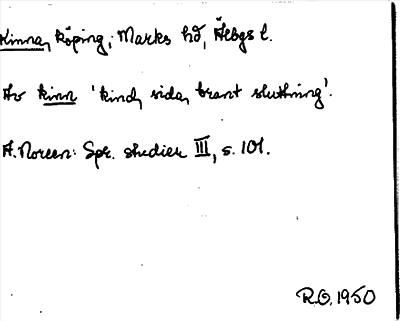 Kinna, köping, Marks hd, Älvbgs l.
Av kinn 'kind, sida, brant sluttning'.
A. Noreen: Spr. studier III, s. 101.
R.O. 1950